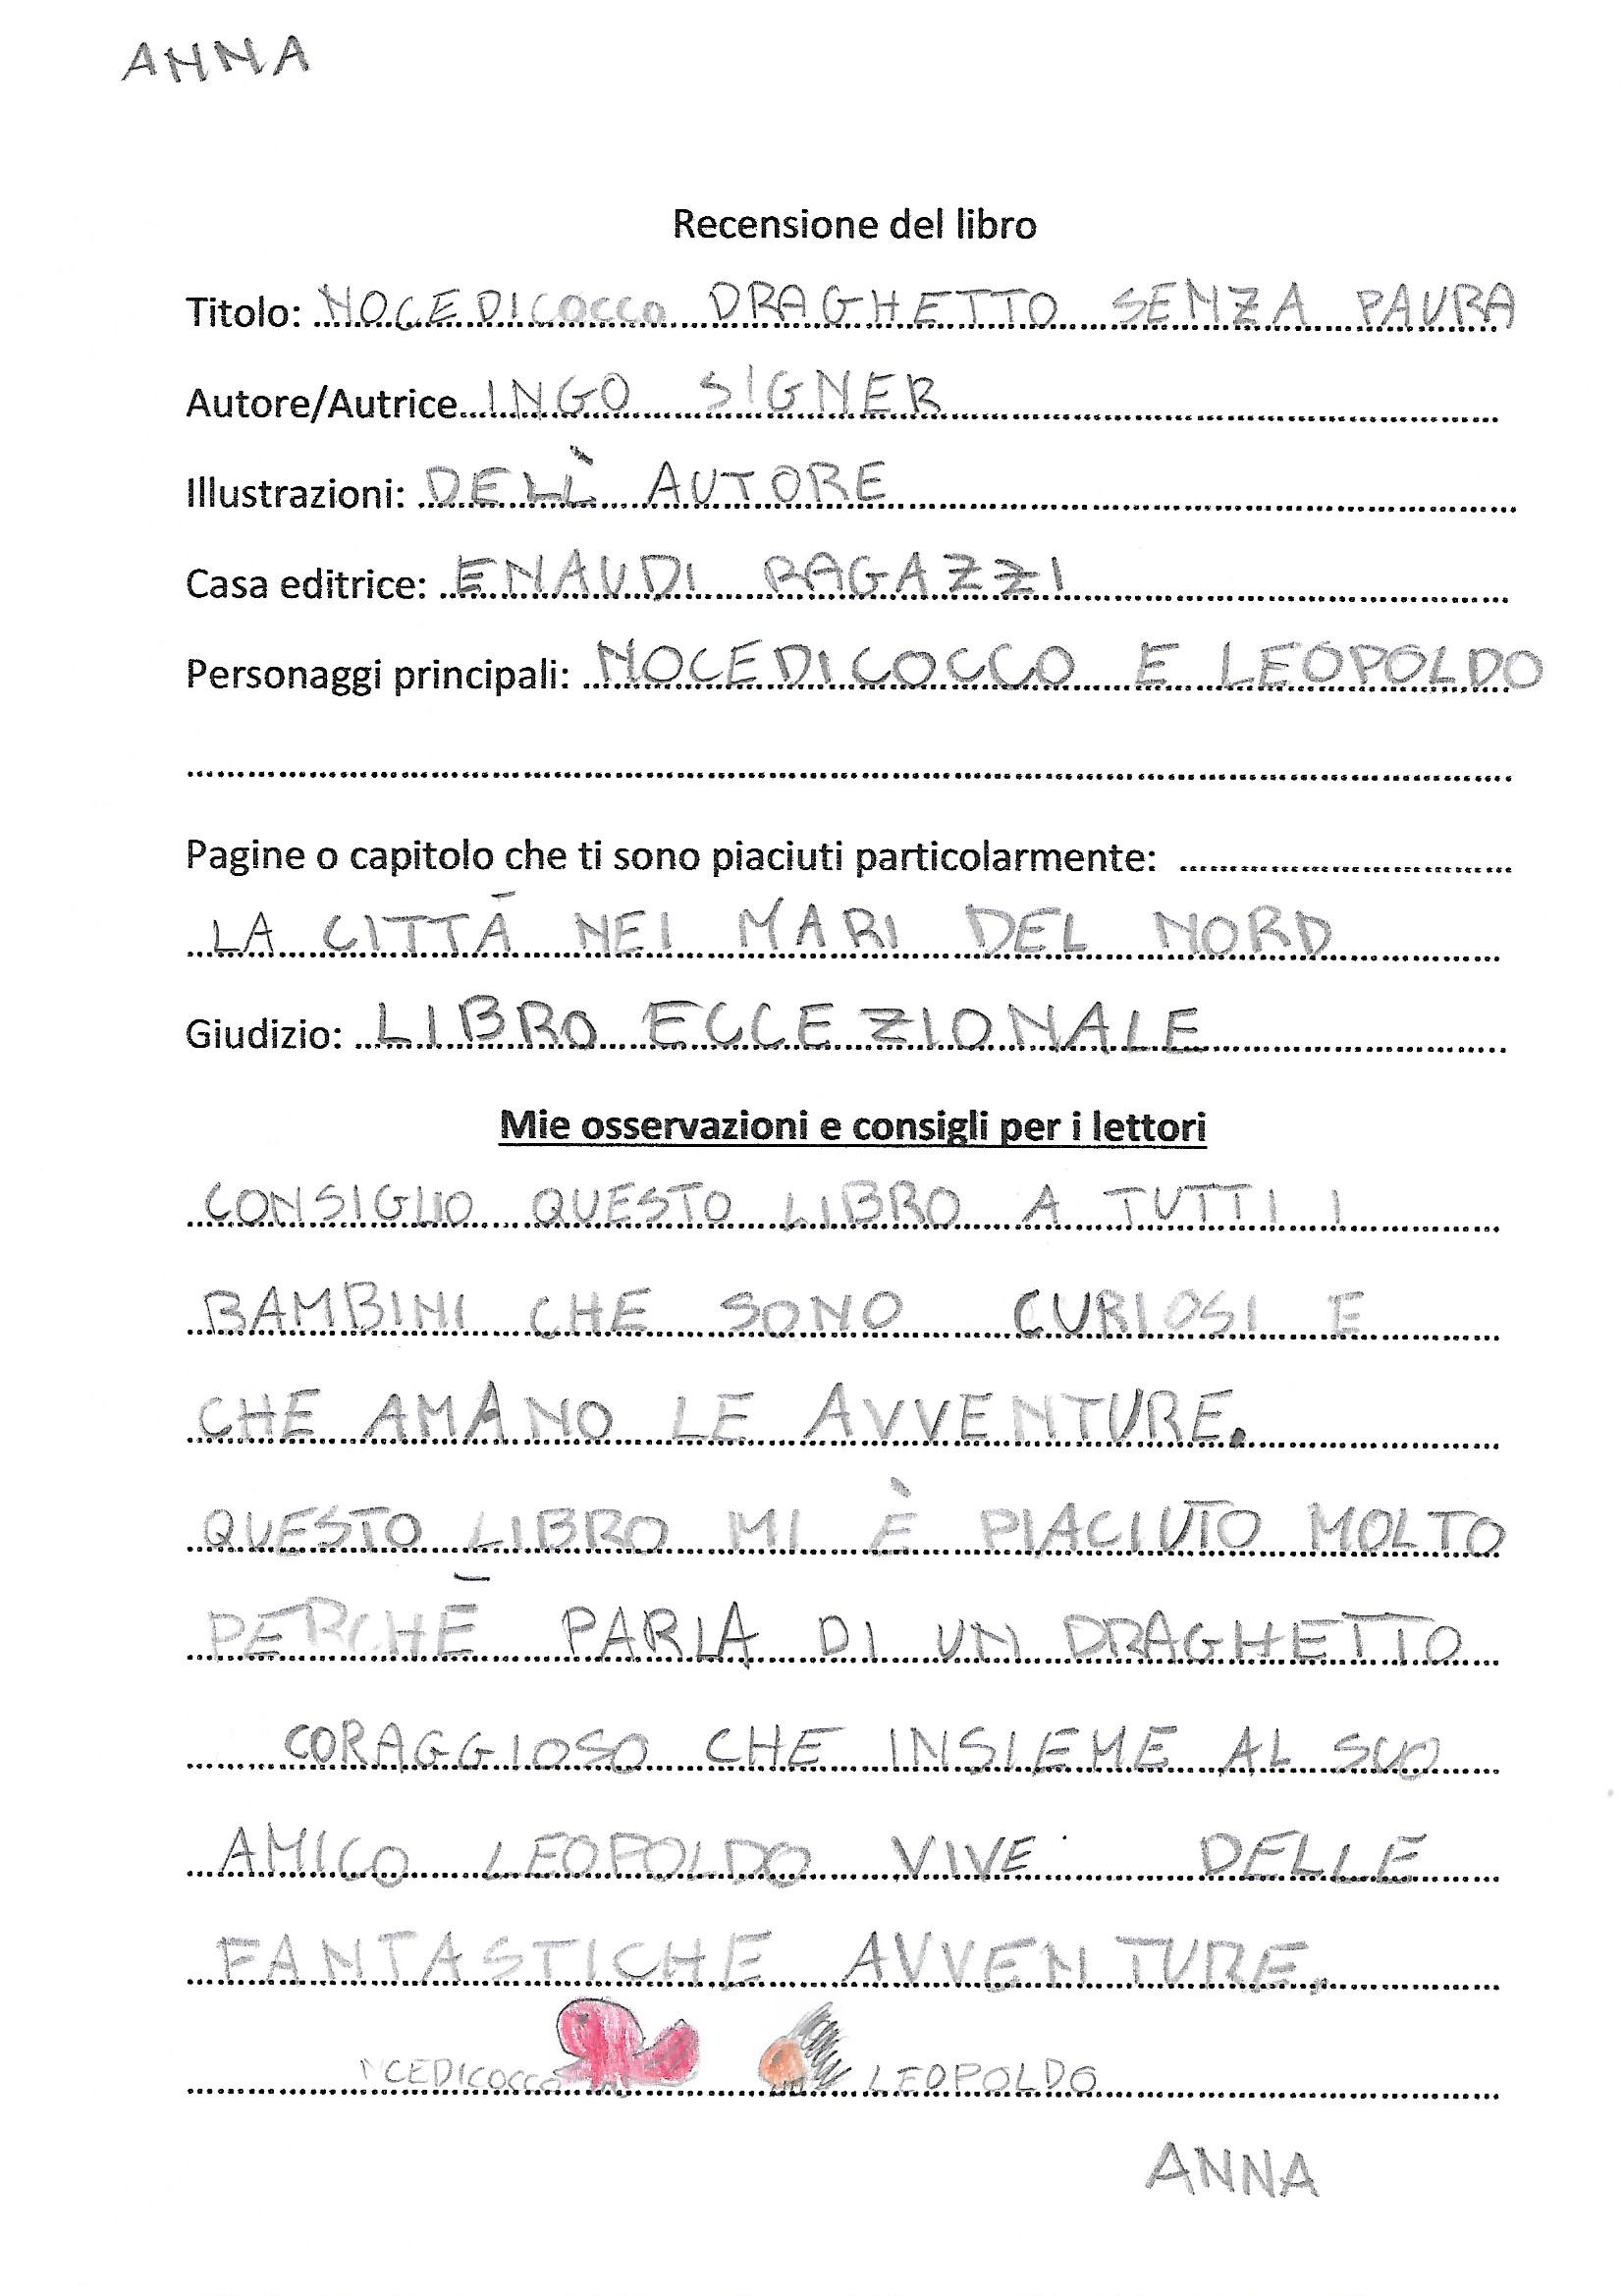 ANNA
Recensione del libro
Titolo: NOCEDICOCCO DRAGHETTO SENZA PAURA
Autore/Autrice INGO SIGNER
Illustrazioni: DELL' AUTORE
Casa editrice: ENAUDI RAGAZZI
Personaggi principali: NOCEDICOCCO E LEOPOLDO
Pagine o capitolo che ti sono piaciuti particolarmente:
LA CITTÀ NEI MARI DEL NORD
Giudizio: LIBRO ECCEZIONALE
Mie osservazioni e consigli per i lettori
CONSIGLIO QUESTO LIBRO A TUTTI I
BAMBINI CHE SONO CURIOSI E
CHE AMANO LE AVVENTURE.
QUESTO LIBRO MI È PIACIUTO MOLTO
PERCHÉ PARLA DI UN DRAGHETTO
CORAGGIOSO CHE INSIEME AL SUO
AMICO LEOPOLDO VIVE DELLE
FANTASTICHE AVVENTURE.
NCEDICOCCO LEOPOLDO
ANNA